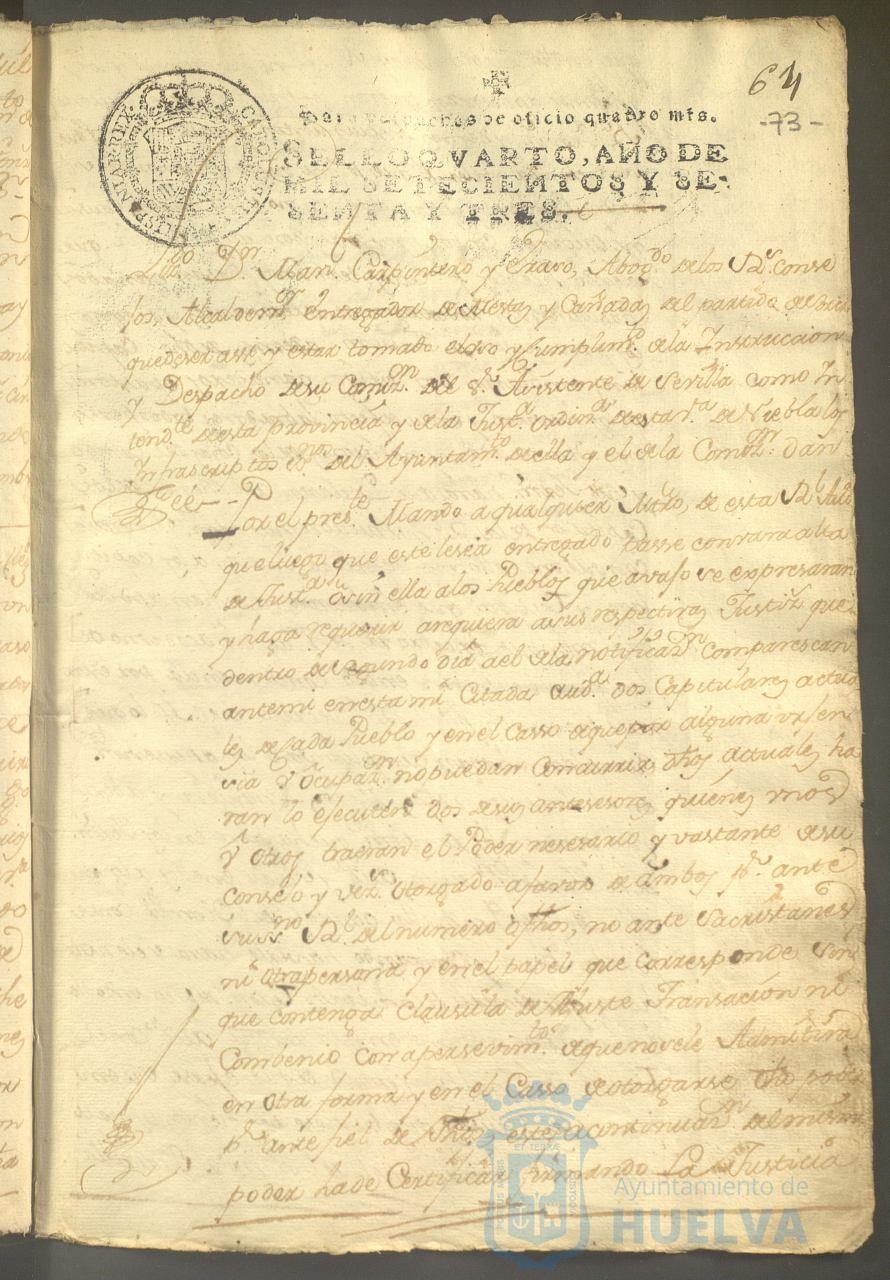 64
-73-
HISPANIARREX. CAROLUS III
Para despachos de oficio quatro mrs.
SELLO QVARTO, AÑO DE
MIL SETECIENTOS Y SE-
SENTA Y TRES.
Lizdo Dn Man. Carpintero y Bravo, Abogdo de los Rs. conse
jos, Alcalde mr entregador de Mestas y Cañadas del partido de
que de ser assi y estar tomado el uso y Cumplimto. de la Instruccion
y Despacho de su Comizn. del Sr. Asistente de Sevilla como In
tendte de esta provincia y de la Justa ordina de esta va de Niebla los
Infrascriptos Esnos del Ayuntamto de ella y el de la Comizn. dan
Fee
Por el preste Mando a qualquier Mtro, de esta Rl Auda
que luego que este le sea entregado passe con vara alta
de Justa o sin ella a los Pueblos que avajo se expresaran
y haga requerir a sus respectivas Justizs que
dentro de segundo dia del de la notificazn comparescan
ante mi en esta mi Citada auda dos Capitulares actua
les de Cada Pueblo y en el Casso de que por alguna
y Ocupazn no puedan Concurrir dhos actuales ha
ran lo ejecuten dos de sus antesesores quienes unos
y otros traeran el Poder nesesario y vastante de su
Consejo y vezs. otorgado a favor de ambos pr. ante
Ssno Rl del numero o fhos, no ante Sacristanes
ni otra persona y en el papel que corresponde sin
que contenga clausula de Ajuste Transacion ni
Combenio con apersevimto. de que no se le Admitira
en otra forma y en el Casso de otorgarse dho poder
pr. ante fiel de fhos este a continuazn del mismo
poder ha de Certificar firmando La Justicia
Ayuntamiento de
HUELVA